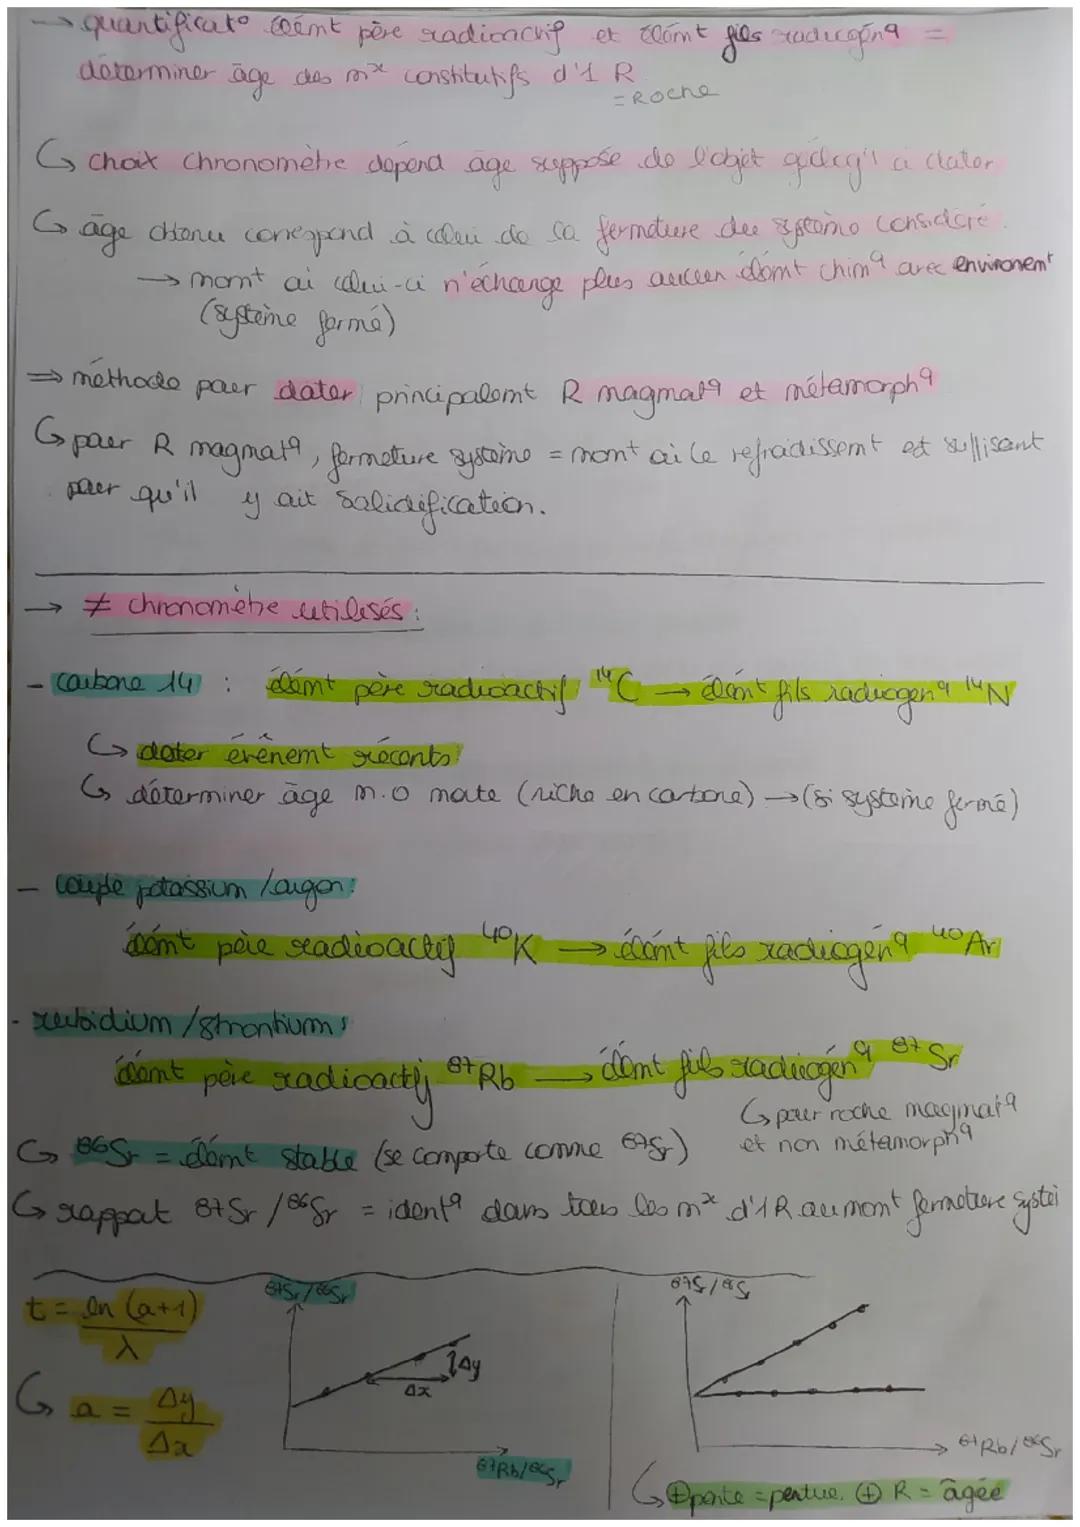 → quantificat° élémt père radioactif et élémt fils radiogéniq =
déterminer âge des mx constitutifs d'1 R
= Roche
↳ choix chronomètre dépend âge supposé de l'objet géolog'q à dater
↳ âge obtenu correspond à celui de la fermeture du système considéré.
→ momt où celui-ci n'échange plus aucun élémt chimq avec environemt
(système fermé)
⇒ méthode pour dater principalemt R magmatq et métamorphq
↳ pour R magmatq, fermeture système = momt où le refroidissemt est suffisant
pour qu'il y ait solidification.
→ ≠ chronomètre utilisés :
- carbone 14 : élémt père radioactif 14C → élémt fils radiogénq 14N
↳ dater évènemt récents
↳ déterminer âge m.o morte (riche en carbone) → (si système fermé)
- couple potassium / argon :
élémt père radioactif 40K → élémt fils radiogénq 40Ar
- rubidium / strontium :
élémt père radioactif 87Rb → élémt fils radiogénq 87Sr
↳ pour roche magmatq
et non métamorphq
↳ 86Sr = élémt stable (se comporte comme 87Sr)
↳ rapport 87Sr / 86Sr = identq dans tous les mx d'1 R au momt fermeture systè
t = ln (a+1) / λ
↳ a = Δy / Δx
87Sr / 86Sr
Δy
Δx
87Rb / 86Sr
87Sr / 86Sr
87Rb / 86Sr
↳ ⊕ pente = pentue, ⊕ R = âgée